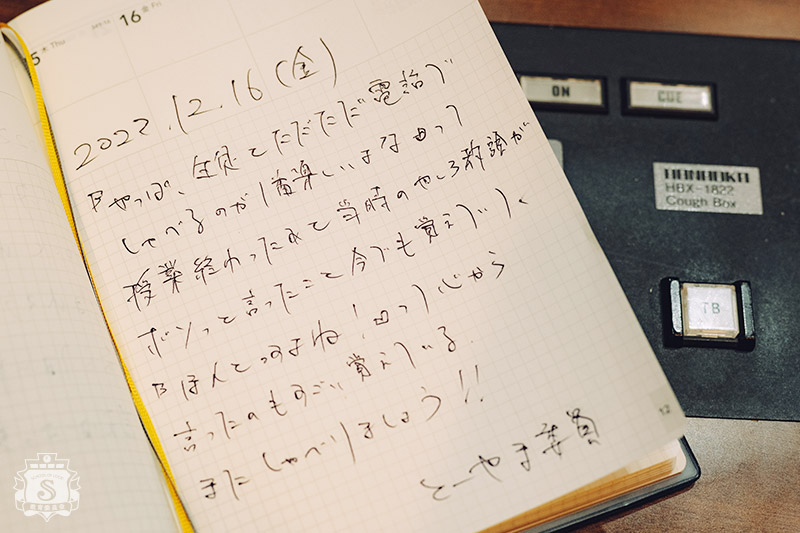 5 木 Thu
16 金 Fri
2022.12.16(金)
「やっぱ、生徒とただただ電話で
しゃべるのが1番楽しいよな」って
授業終わったあと当時のやしろ教頭が
ボソッと言ったこと今でも覚えていて
「ほんとっすね!」って心から
言ったのもすごい覚えている.
またしゃべりましょう!!
とーやま委員
12
ON
CUE
HBX-1822
Cough Box
TB
S